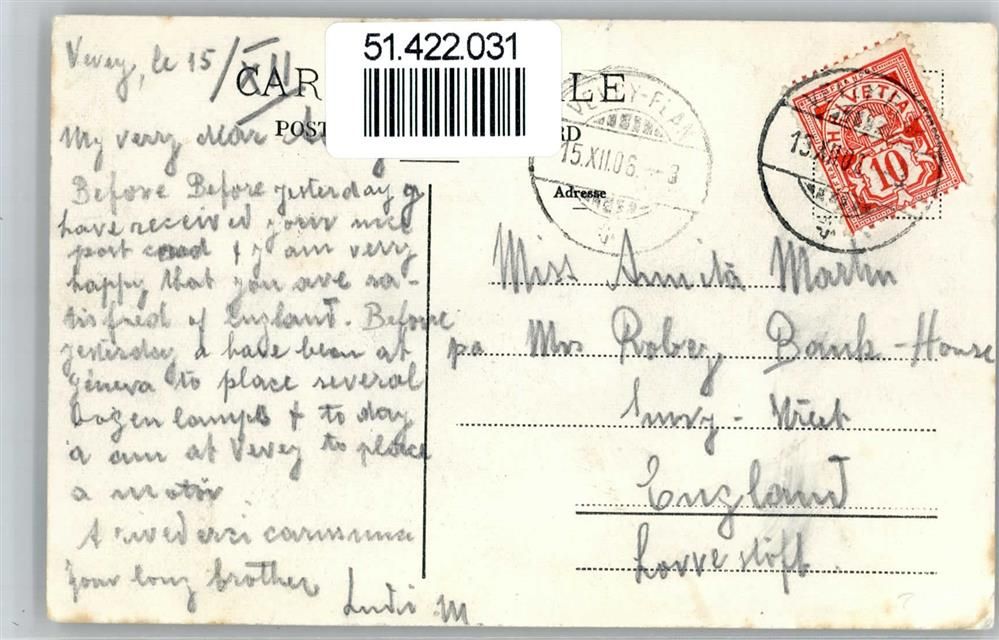 51.422.031
Vevey, le 15/XII
CAR LE
POST RD
Adresse
VEVEY-PLAN
15.XII.06. - 3
HELVETIA
10
My very dear
Before Before yesterday y
have received your nice
post card & y am very
happy that you ave sa-
tisfred of England. Before
yesterday a have been at
Géneva to place several
bozen lamps & to day
a am at Vevey to place
a motor
Arivederci carissima
Your long brother
M.
Miss Annita Martin
pa Mrs Robey Bank-House
England
Lowestoft